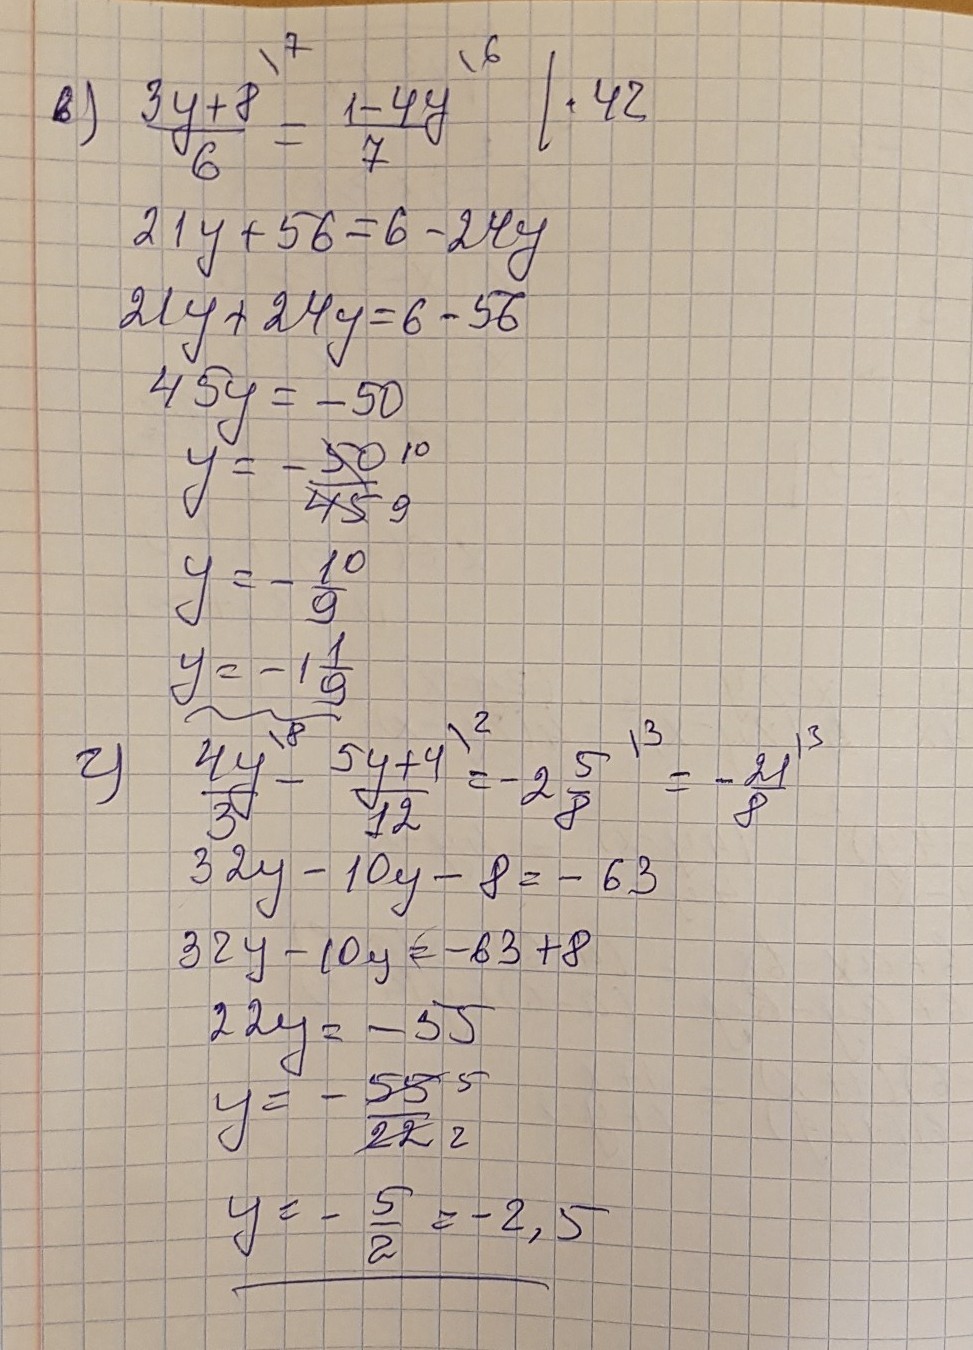 в) (3y+8)/6 \7 = (1-4y)/7 \6 | · 42
21y+56=6-24y
21y+24y=6-56
45y=-50
y=-50/45 10/9
y=-10/9
y=-1 1/9
г) 4y/3 \8 - (5y+4)/12 \2 =-2 5/8 \3 = -21/8 \3
32y-10y-8=-63
32y-10y=-63+8
22y=-55
y=-55/22 5/2
y=-5/2=-2,5